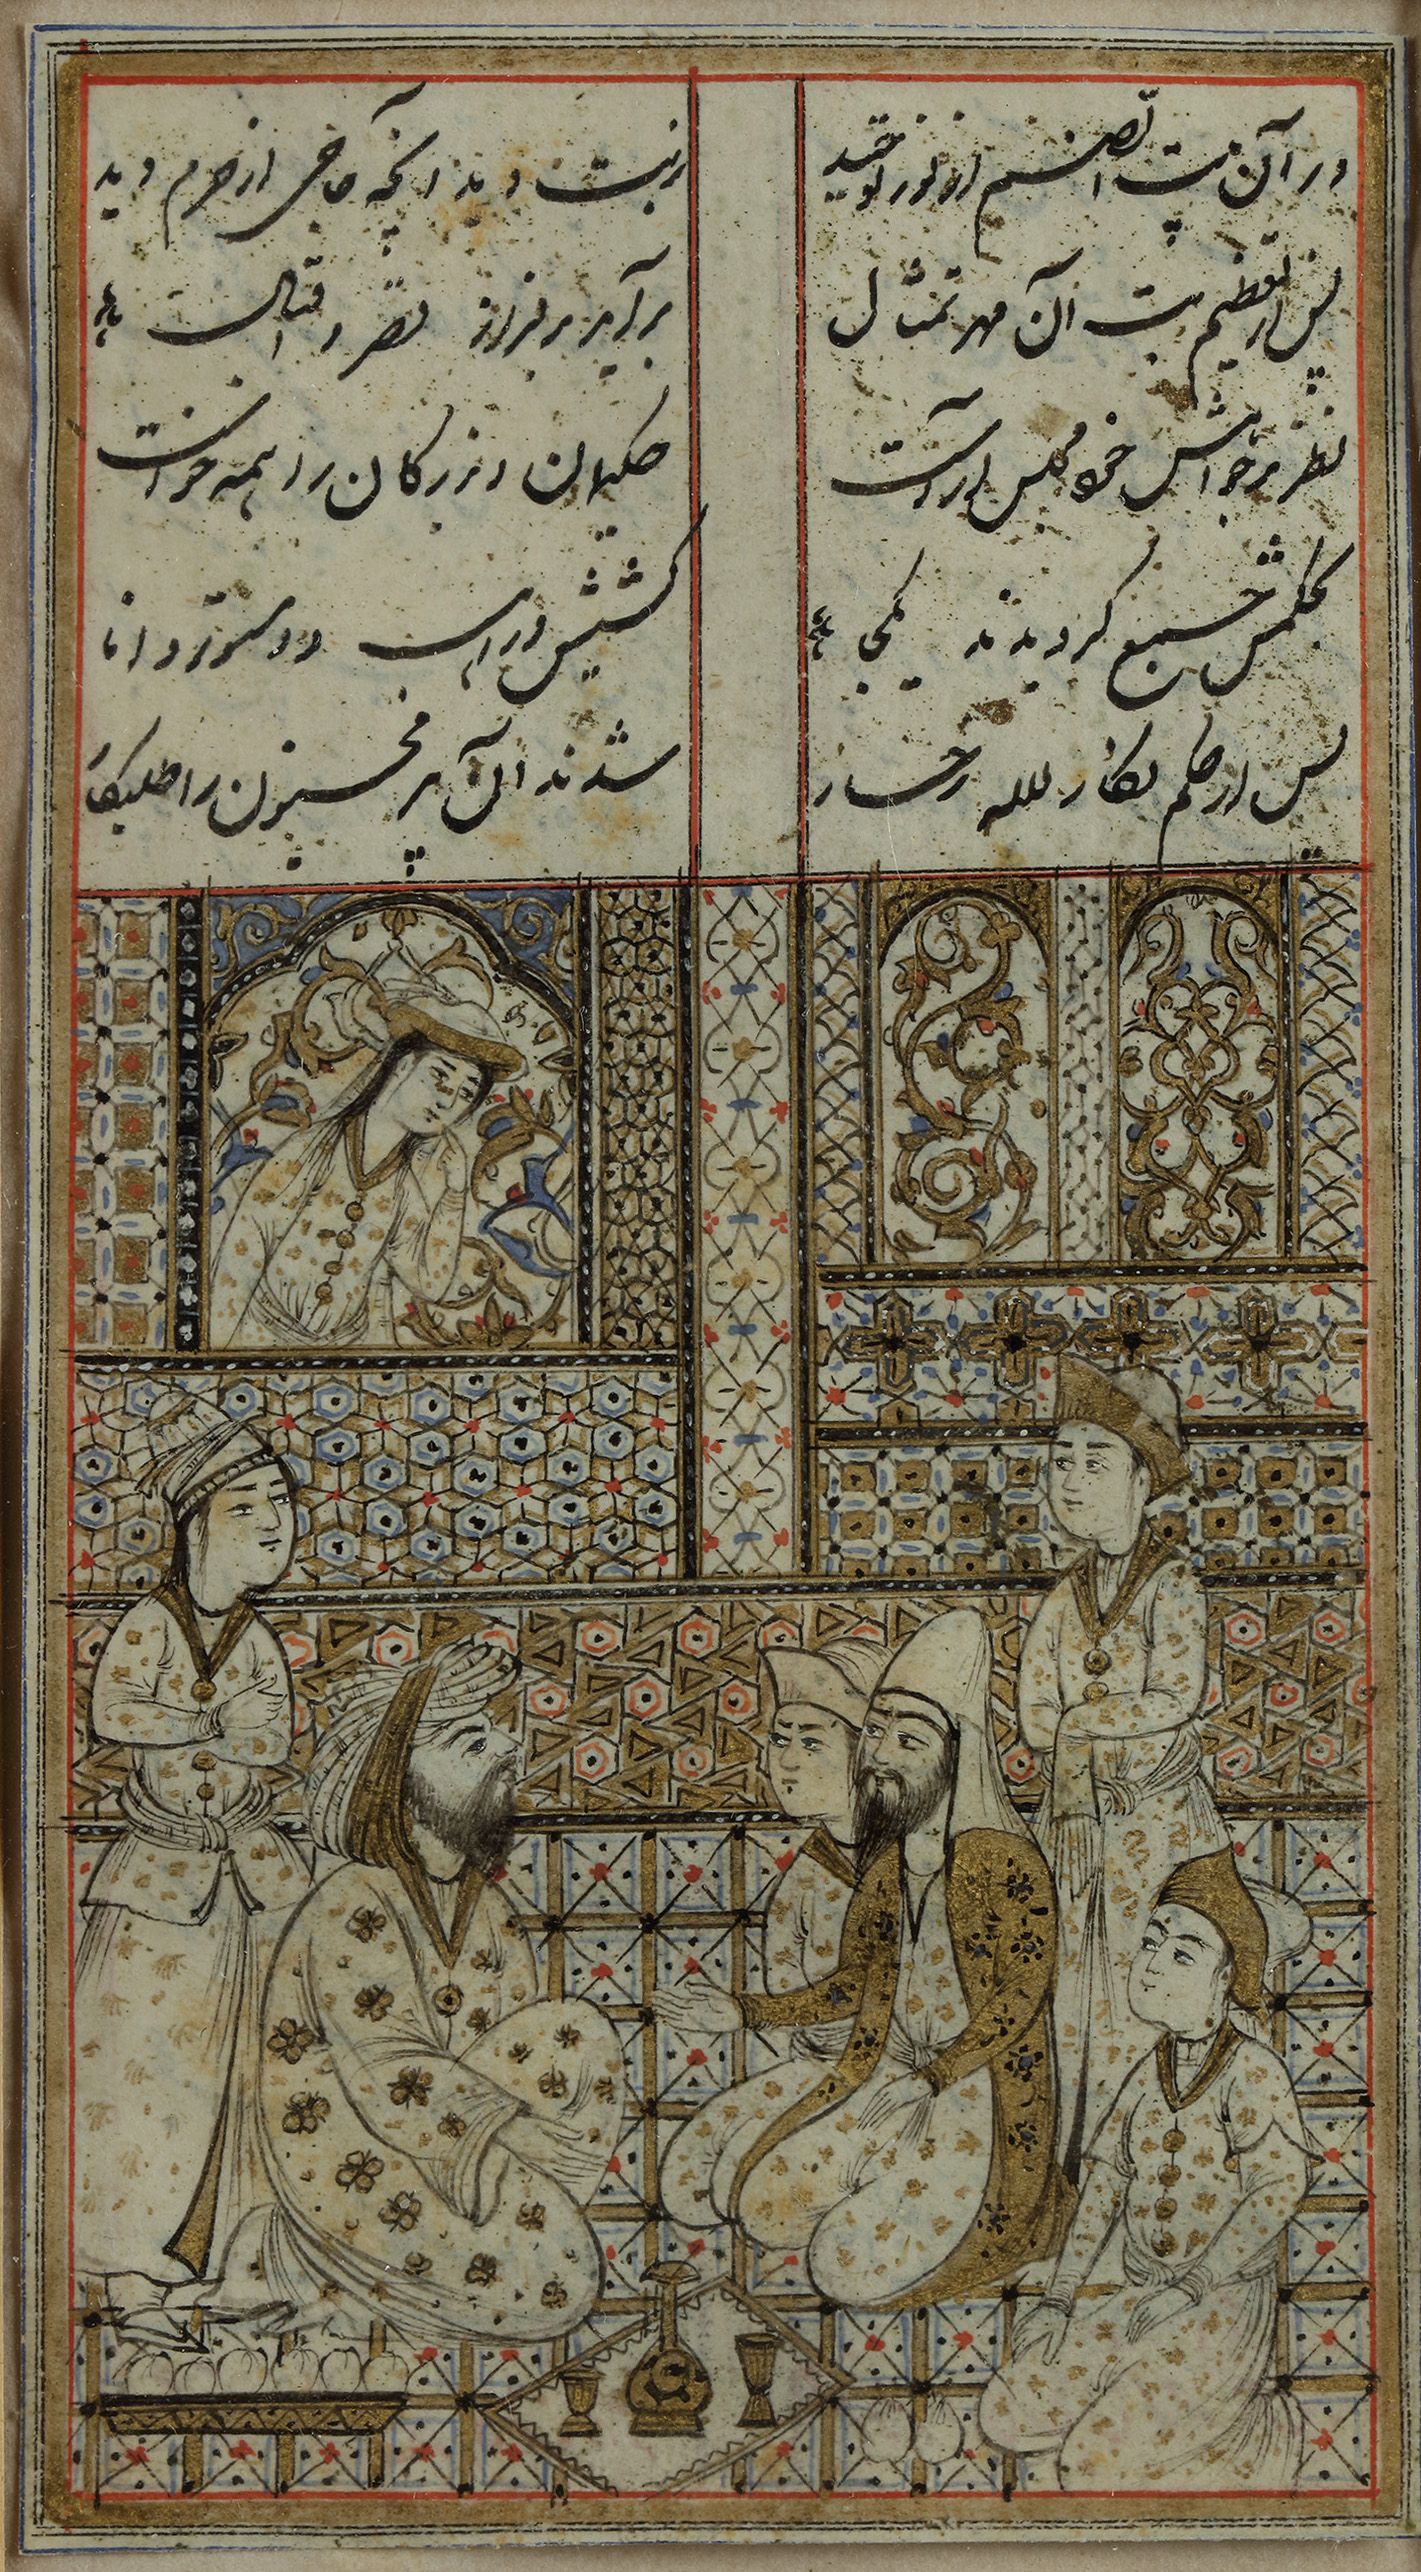 در آن بت الصنم از نور توحید    بدید آنچه حاجی از حرم دید
پس از تعظیم بت آن مهر تمثال    برآمد بر فراز قصر اقبال
نظر بر خواهش خود مجلس آراست    حکیمان و بزرگان را همه خواست
بحکمش جمع گردیدند یکجا    کشیش و راهب و دستور دانا
پس از حکم نگار لاله رخسار    شدند آن پیر محزون را طلبکار